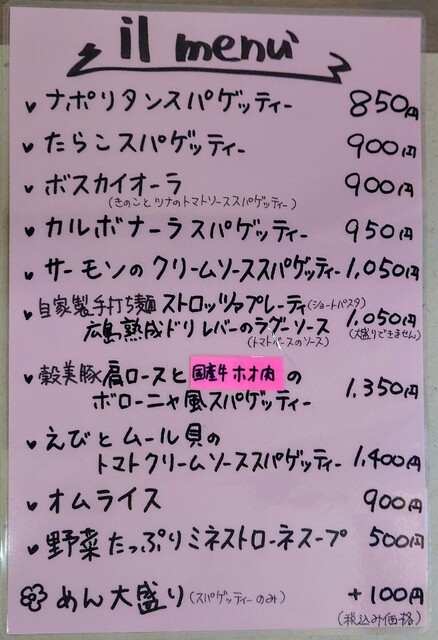 il menù
ナポリタンスパゲッティー 850円
たらこスパゲッティー 900円
ボスカイオーラ 900円
(きのことツナのトマトソーススパゲッティー)
カルボナーラスパゲッティー 950円
サーモンのクリームソーススパゲッティー 1,050円
自家製手打ち麺ストロッツァプレーティ(ショートパスタ)
広島熟成ドリレバーのラグーソース 1,050円
(トマトベースのソース) (大盛りできません)
穀美豚肩ロースと国産牛ホオ肉の
ボローニャ風スパゲッティー 1,350円
えびとムール貝の
トマトクリームソーススパゲッティー 1,400円
オムライス 900円
野菜たっぷりミネストローネスープ 500円
めん大盛り(スパゲッティーのみ) +100円
(税込み価格)